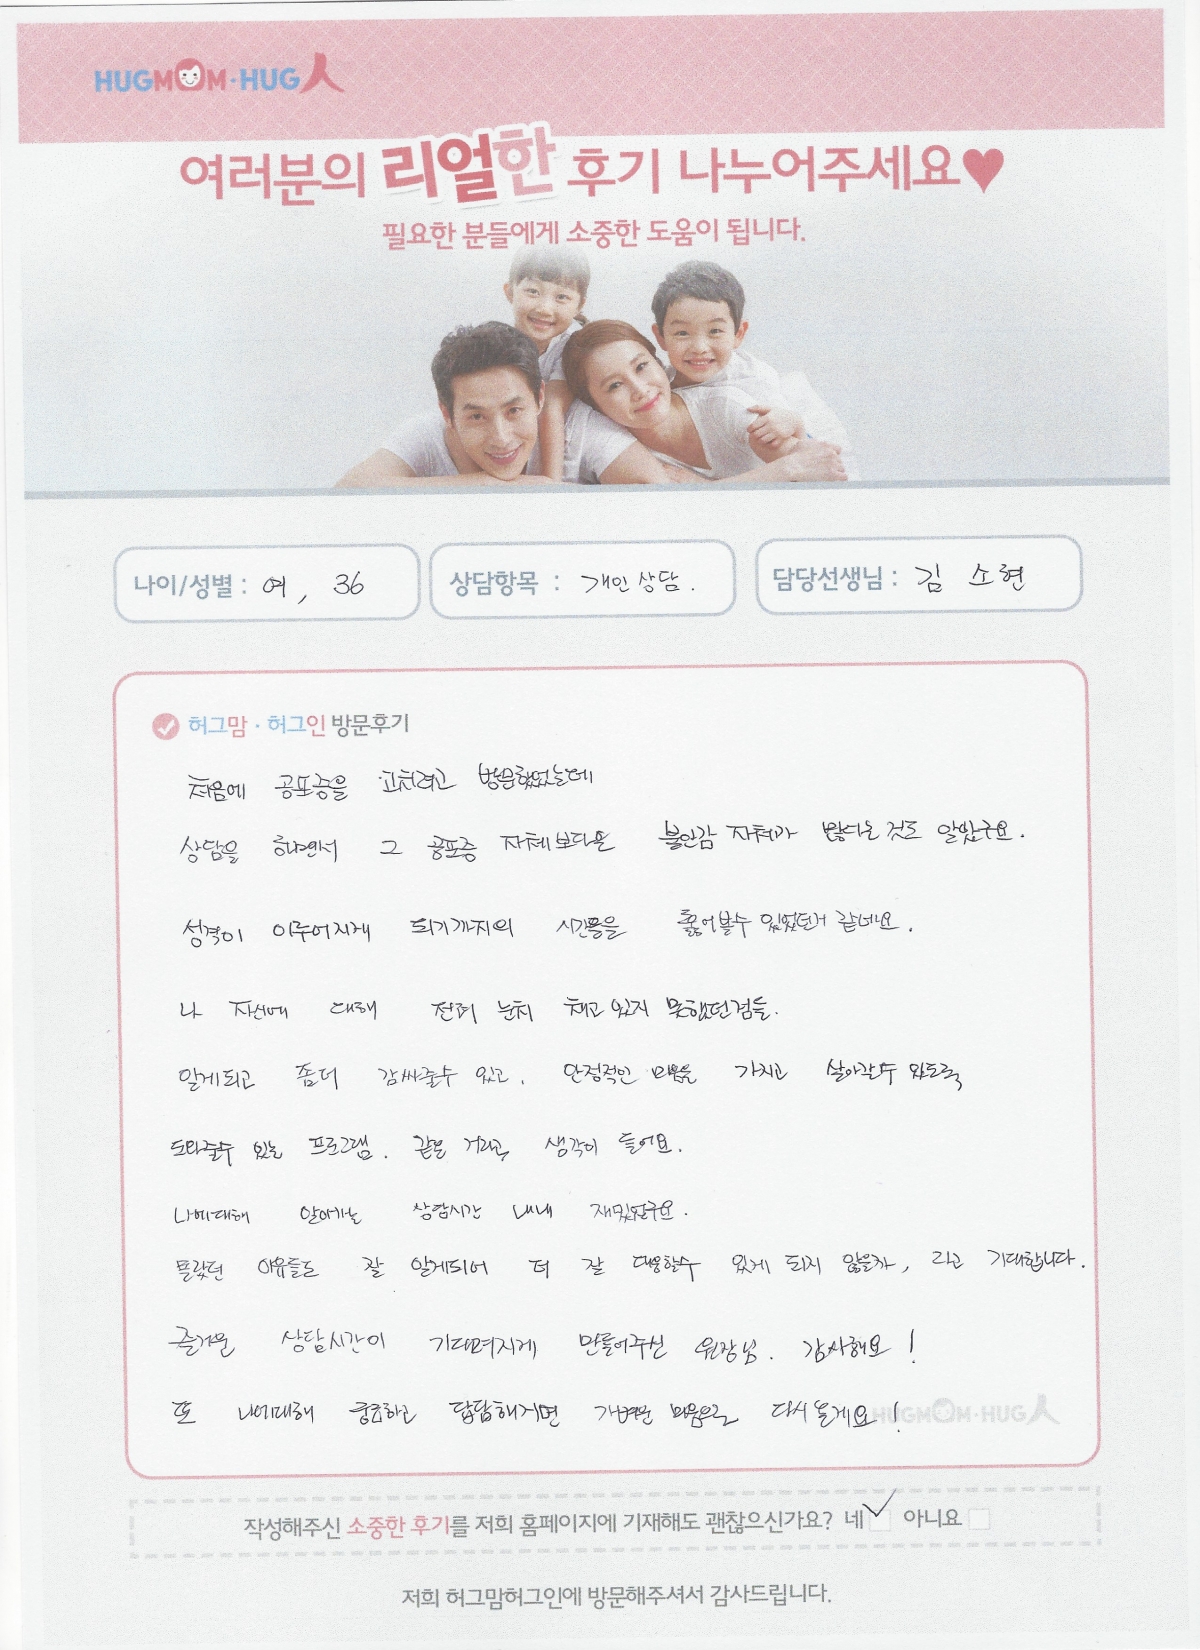 HUGMOM·HUG人
여러분의 리얼한 후기 나누어주세요♥
필요한 분들에게 소중한 도움이 됩니다.
나이/성별 : 여, 36
상담항목 : 개인상담.
담당선생님 : 김 소현
허그맘 · 허그인 방문후기
처음에 공포증을 고치려고 방문했었는데
상담을 하면서 그 공포증 자체보다은 불안감 자체가 많다는 것도 알았구요.
성격이 이루어지게 되기까지의 시간들을 훑어볼수 있었던거 같네요.
나 자신에 대해 전혀 눈치 채고 있지 못했던점들.
알게되고 좀더 감싸줄수 있고, 안정적인 마음을 가지고 살아갈수 있도록
도와줄수 있는 프로그램. 같은 거라고 생각이 들어요.
나에대해 알아가는 상담시간 내내 재밌었구요.
몰랐던 이유들도 잘 알게되어 더 잘 대응할수 있게 되지 않을까, 라고 기대합니다.
즐거운 상담시간이 기다려지게 만들어주신 원장님. 감사해요!
또 나에대해 궁금하고 답답해지면 가벼운 마음으로 다시 올게요!
HUGMOM·HUG人
작성해주신 소중한 후기를 저희 홈페이지에 기재해도 괜찮으신가요? 네 ✓ 아니요
저희 허그맘허그인에 방문해주셔서 감사드립니다.